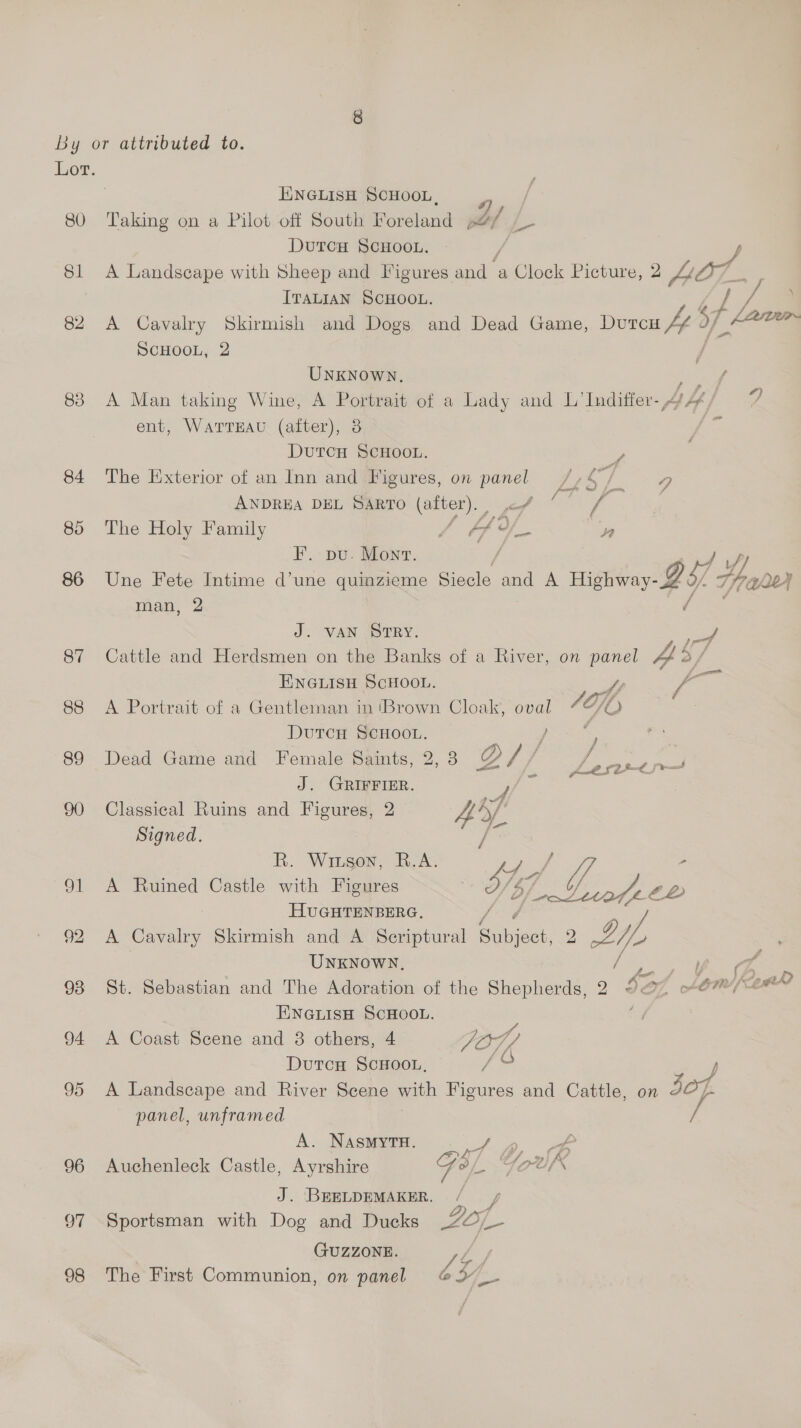 8
By or attributed to.
Lot.
ENGLISH SCHOOL,
80 Taking on a Pilot off South Foreland
DUTCH SCHOOL.
81 A Landscape with Sheep and Figures and a Clock Picture, 2
ITALIAN SCHOOL.
82 A Cavalry Skirmish and Dogs and Dead Game, DUTCH
SCHOOL, 2
UNKNOWN.
83 A Man taking Wine, A Portrait of a Lady and L'Indiffer-
ent, WATTEAU (after), 3
DUTCH SCHOOL.
84 The Exterior of an Inn and Figures, on panel
ANDREA DEL SARTO (after).
85 The Holy Family
F. DU. MONT.
86 Une Fete Intime d'une quinzieme Siecle and A Highway-
man, 2
J. VAN STRY.
87 Cattle and Herdsmen on the Banks of a River, on panel
ENGLISH SCHOOL.
88 A Portrait of a Gentleman in Brown Cloak, oval
DUTCH SCHOOL.
89 Dead Game and Female Saints, 2, 3
J. GRIFFIER.
90 Classical Ruins and Figures, 2
Signed.
R. WILSON, R.A.
91 A Ruined Castle with Figures
HUGHTENBERG.
92 A Cavalry Skirmish and A Scriptural Subject, 2
UNKNOWN.
93 St. Sebastian and The Adoration of the Shepherds, 2
ENGLISH SCHOOL.
94 A Coast Scene and 3 others, 4
DUTCH SCHOOL.
95 A Landscape and River Scene with Figures and Cattle, on
panel, unframed
A. NASMYTH.
96 Auchenleck Castle, Ayrshire York
J. BEELDEMAKER.
97 Sportsman with Dog and Ducks
GUZZONE.
98 The First Communion, on panel